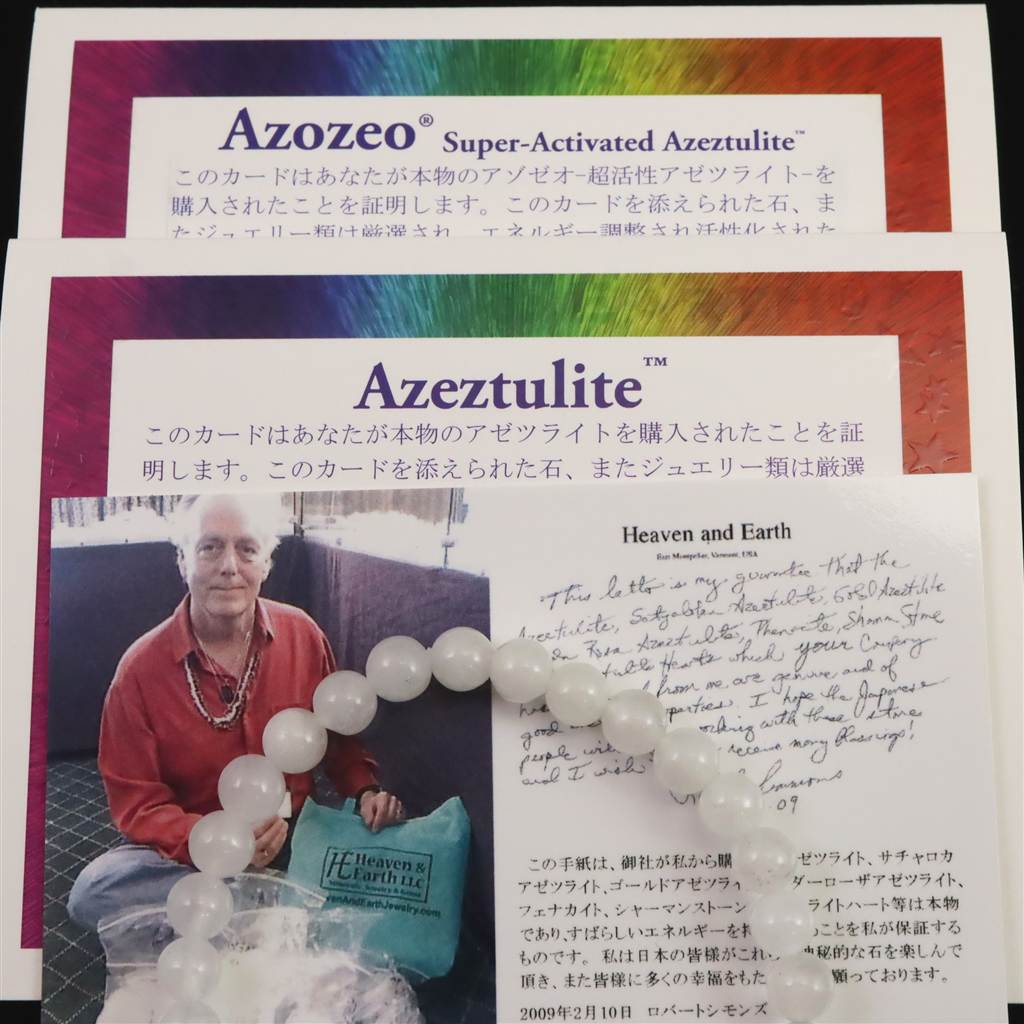 Azozeo® Super-Activated Azeztulite™
このカードはあなたが本物のアゾゼオ-超活性アゼツライト-を
購入されたことを証明します。このカードを添えられた石、ま
たジュエリー類は厳選され、エネルギー調整され活性化された
Azeztulite™
このカードはあなたが本物のアゼツライトを購入されたことを証
明します。このカードを添えられた石、またジュエリー類は厳選
Heaven and Earth
East Montpelier, Vermont, USA
This letter is my guarantee that the
Azeztulite, Satyaloka Azeztulite, Gold Azeztulite
Rosa Azeztulite, Phenacite, Shaman Stone
Hearts which your Company
from me are genuine and of
good properties. I hope the Japanese
people working with these stones
and I wish receive many blessings!
Simmons
09
Heaven &
Earth LLC
enAndEarthJewelry.com
この手紙は、御社が私から購 ゼツライト、サチャロカ
アゼツライト、ゴールドアゼツライ ダーローザアゼツライト、
フェナカイト、シャーマンストーン ライトハート等は本物
であり、すばらしいエネルギーを持 ことを私が保証する
ものです。 私は日本の皆様がこれ 神秘的な石を楽しんで
頂き、また皆様に多くの幸福をもた 願っております。
2009年2月10日 ロバートシモンズ